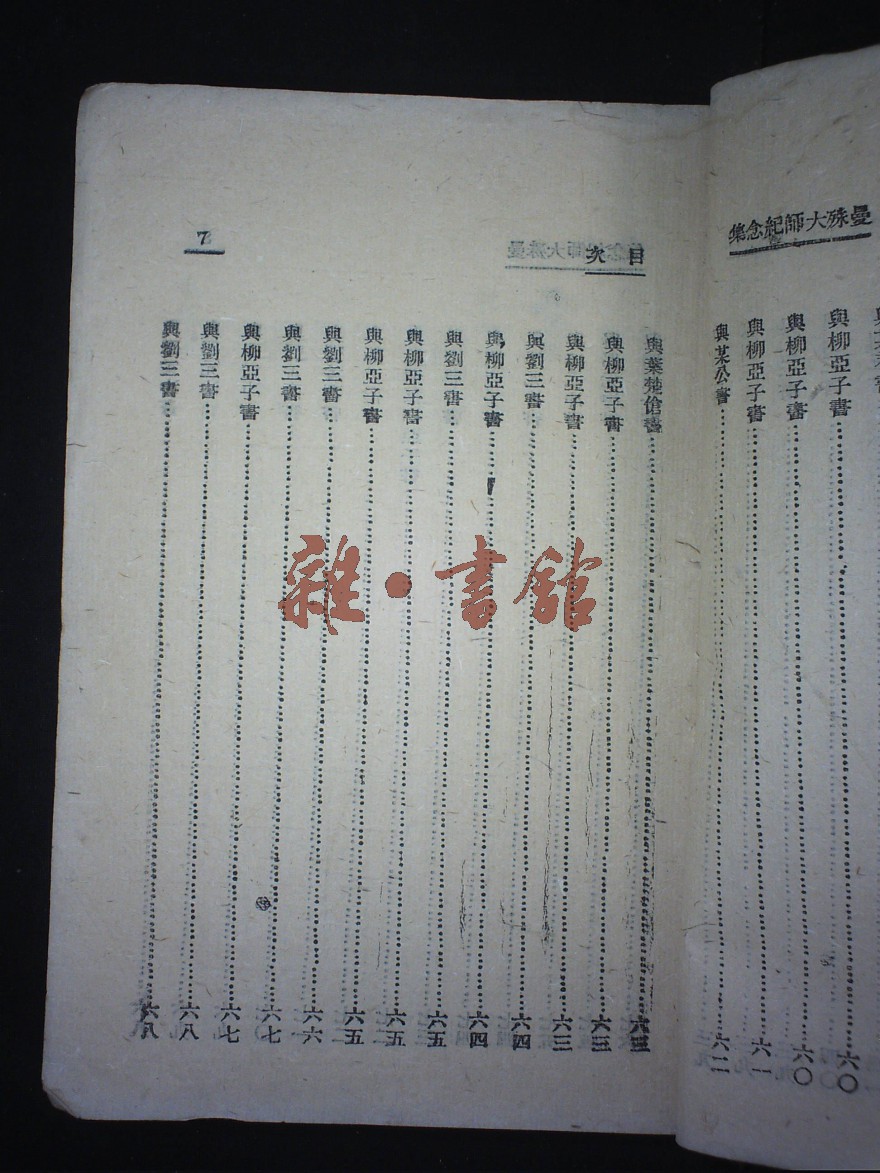 曼殊大師紀念集
與柳亞子書……六〇
與柳亞子書……六〇
與柳亞子書……六一
與某公書……六二
目次
7
與葉楚傖書……六三
與柳亞子書……六三
與柳亞子書……六三
與劉三書……六四
與柳亞子書……六四
與劉三書……六五
與柳亞子書……六五
與柳亞子書……六五
與劉三書……六六
與劉三書……六七
與柳亞子書……六七
與劉三書……六八
與劉三書……六八
雜·書館